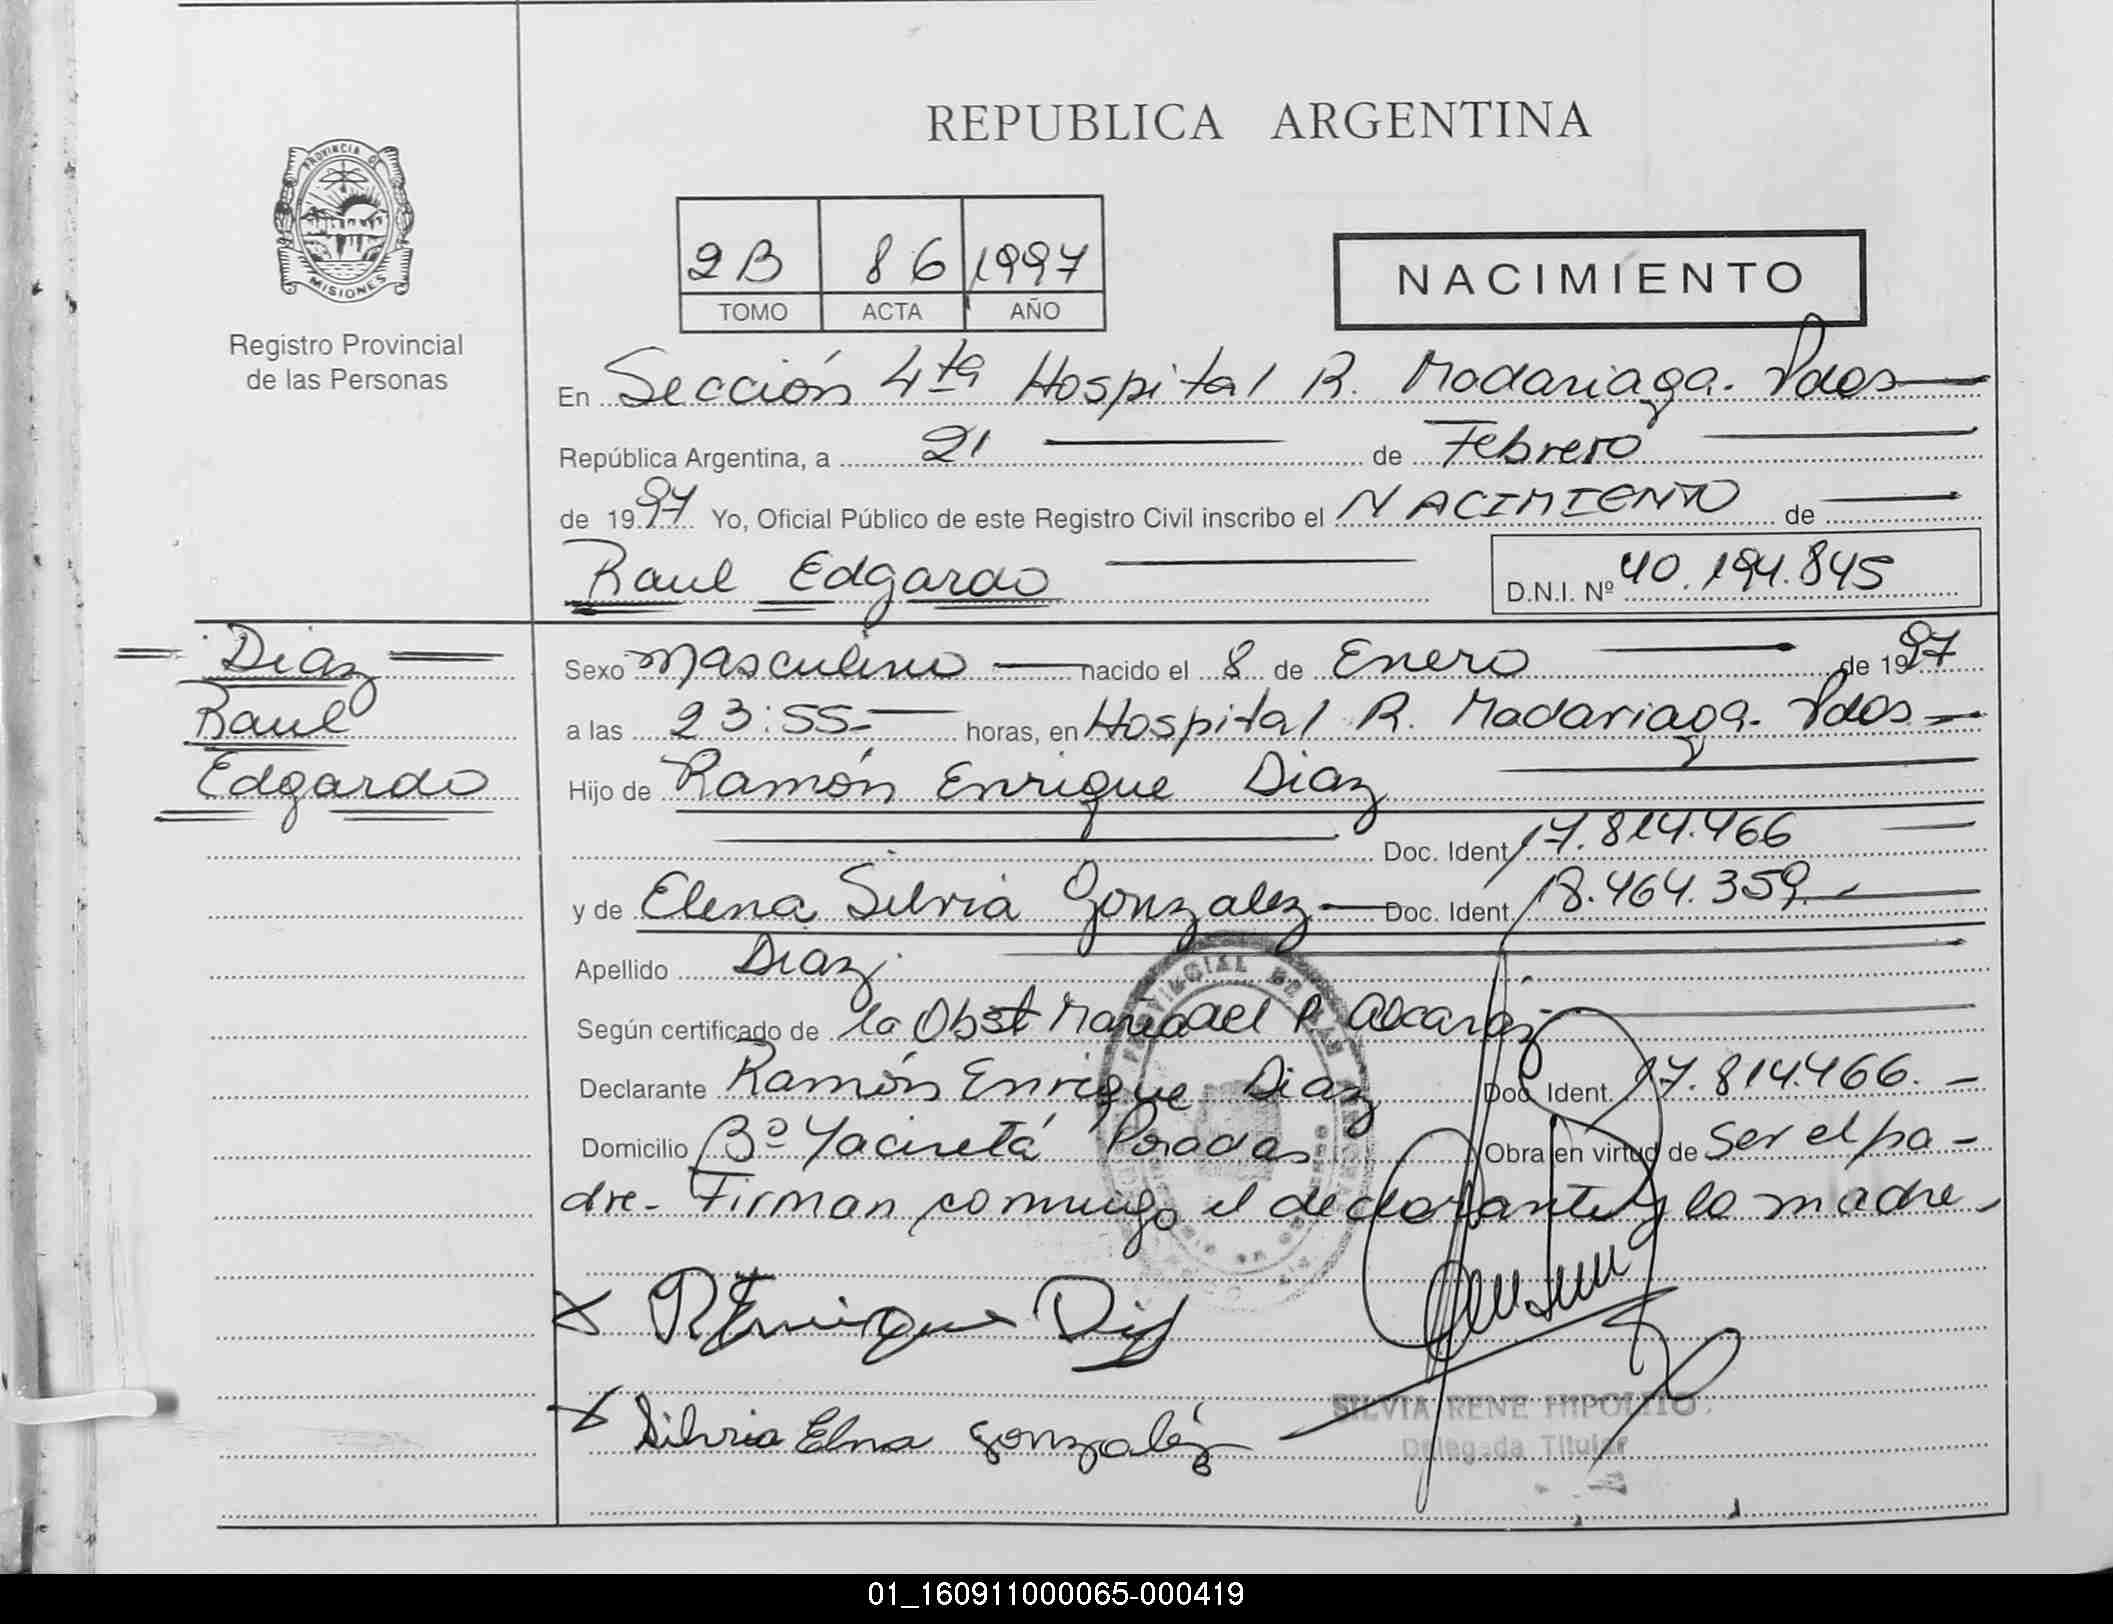 REPUBLICA ARGENTINA
PROVINCIA DE
MISIONES
Registro Provincial
de las Personas
2B 86 1997
TOMO ACTA AÑO
NACIMIENTO
En Sección 4ta Hospital R. Madariaga. Pdas
República Argentina, a 21 de Febrero
de 1997 Yo, Oficial Público de este Registro Civil inscribo el NACIMIENTO de
Raul Edgardo D.N.I. Nº 40.194.845
Diaz
Raul
Edgardo
Sexo masculino nacido el 8 de Enero de 1997
a las 23:55.- horas, en Hospital R. Madariaga. Pdas
Hijo de Ramón Enrique Diaz
Doc. Ident. 17.814.466
y de Elena Silvia Gonzalez Doc. Ident. 18.464.359.-
Apellido Diaz.
Según certificado de la Obst Maria del P. Alcaraz
Declarante Ramón Enrique Diaz Doc. Ident. 17.814.466.-
Domicilio Bº Yaciretá Posadas Obra en virtud de Ser el pa-
dre. Firman conmigo el declarante y la madre.
x R Enrique Diaz
x Silvia Elena gonzaléz
SILVIA RENE HIPOLITO
Delegada Titular
01_160911000065-000419